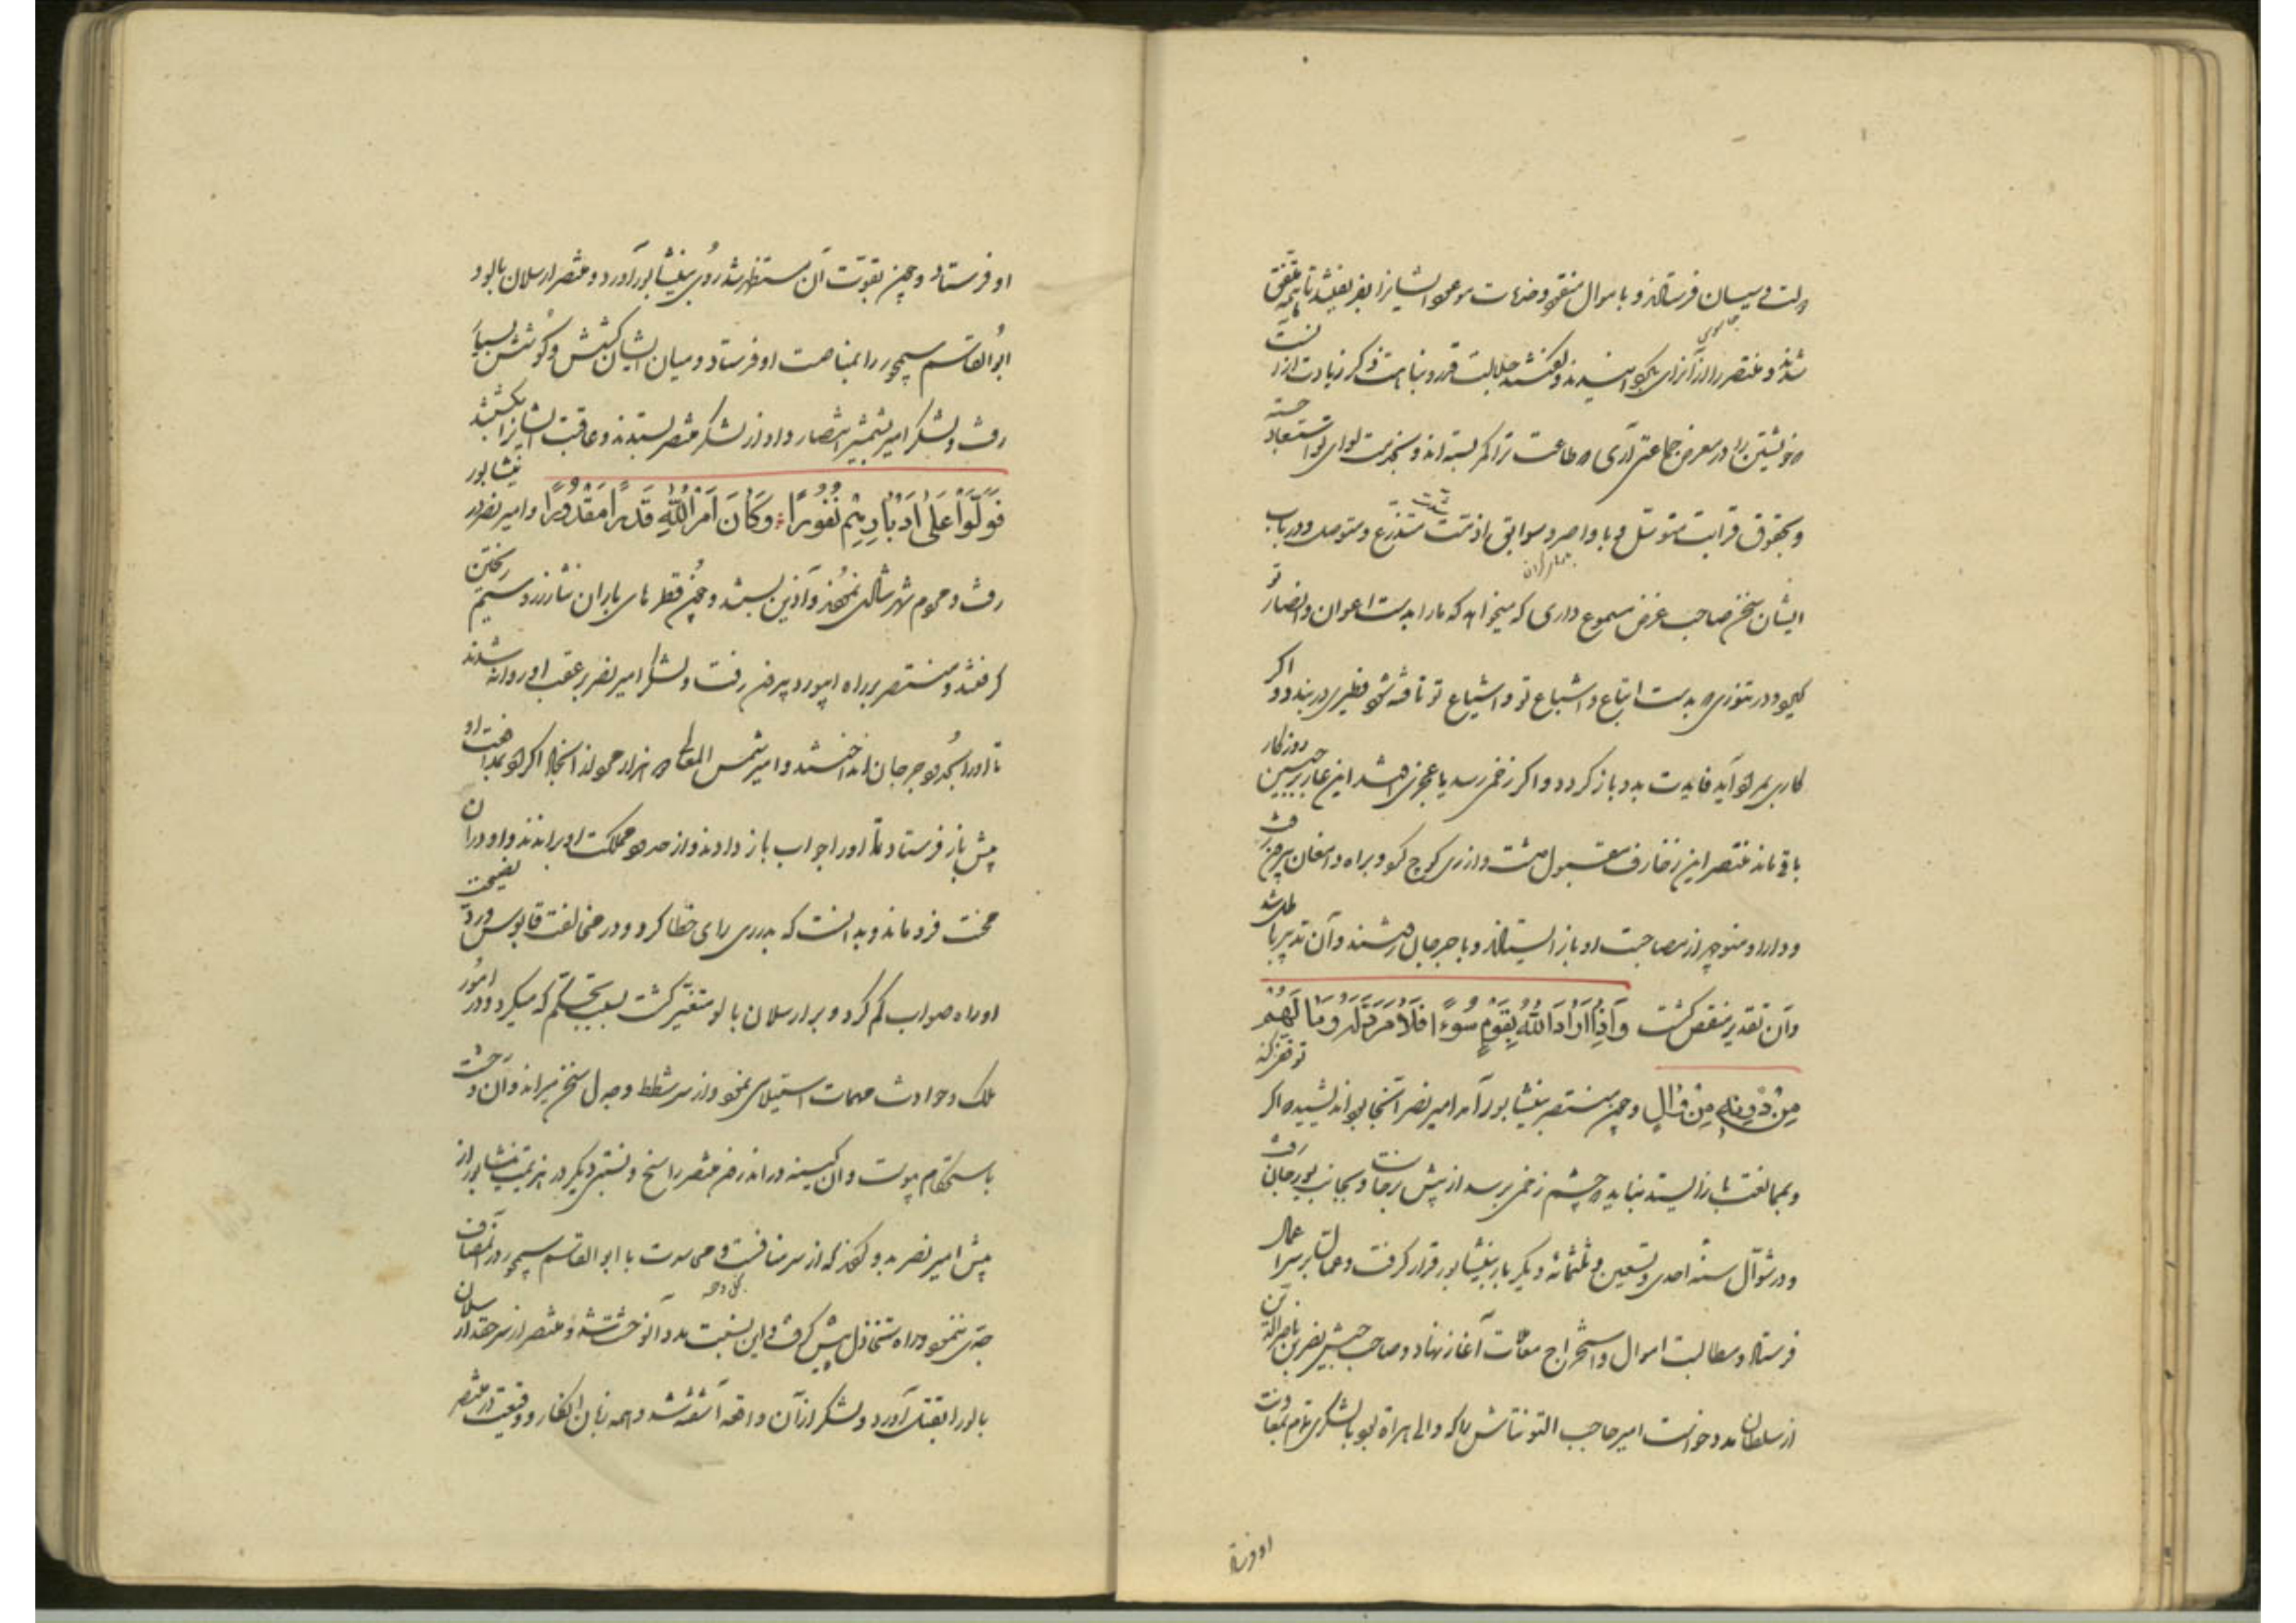 شدند و منتصر را از آن رای بگردانیدند و گفتند جلالت قدر و نباهت ذکر تو زیادت از آنست
که خویشتن را در معرض جماعتی آری که طاعت ترا کمر نبسته اند و بخدمت لوای تو استسعاد نجسته
و بحقوق قرابت متوسل و باواصر و سوابق اذمّت متذرع و متوصل و در باب
ایشان سخن صاحب غرض مسموع داری که میخواهد که مار را بدست اعوان و انصار تو
گیرد و در تنوری که بدست اتباع و اشیاع تو تافته شود فطیری در بندد و اگر
کاری برآید فایدت بدو باز گردد و اگر زخمی رسد یا عجزی باشد این عار بر جبین روزگار
باقی ماند منتصر این زخارف مقبول داشت و از ری کوچ کرد و براه دامغان بیرون رفت
و دارا و منوچهر از مصاحبت او باز ایستادند و با جرجان رفتند و آن تدبیر باطل شد
و آن تقدیر منقض گشت وَاِذَا اَرَادَ اللّٰهُ بِقَوْمٍ سُوءًا فَلَا مَرَدَّ لَهُ وَمَا لَهُمْ
مِنْ دُونِهِ مِنْ وَالٍ و چون منتصر بنیشابور آمد امیر نصر آنجا بود اندیشید که اگر توقف کند
و بممانعت باز ایستد نباید که چشم زخمی برسد از پیش برخاست و بجانب بوزجان رفت
و در شوّال سنه احدی و تسعین و ثلثمائه دیگر بار بنیشابور قرار گرفت و عمال بر سر اعمال
فرستاد و مطالبت اموال و استخراج معاملات آغاز نهاد و صاحب جیش نصر بن ناصر الدین
از سلطان مدد خواست امیر حاجب التونتاش را که والی هراة بود با لشکری تمام بمعاونت
او فرستاد
او فرستاد و چون بقوّت آن مستظهر شد روی بنیشابور آورد و منتصر ارسلان بالو و
ابوالقاسم سیمجور را بمناصبت او فرستاد و میان ایشان کشش و کوشش بسیار
رفت و لشکر امیر بشمشیر انتصار داد از لشکر منتصر بستدند و عاقبت ایشانرا بشکستند
فَوَلَّوْا عَلٰی اَدْبَارِهِمْ نُفُورًا وَكَانَ اَمْرُ اللّٰهِ قَدَرًا مَقْدُورًا و امیر نصر در نیشابور
رفت و عموم شهر شادی نمودند و آذین بستند و چون قطرهای باران نثار زر و سیم ریختن
گرفتند و منتصر بر راه ابیورد بیرون رفت و لشکر امیر نصر بر عقب او روانه شدند
تا او را بحدود جرجان انداختند و امیر شمس المعالی دو هزار مرد از انجاد اکراد بمدافعت او
پیش باز فرستاد تا او را جواب باز دادند و از حدود مملکت او براندند و او در آن
محنت فرو ماند و بدانست که بدر ری رای خطا کرد و در مخالفت قابوس و رد نصیحت
او راه صواب گم کرد و بر ارسلان بالو متغیّر گشت بسبب تحکّم که میکرد و در امور
ملک و حوادث مهمات استیلای نمود و از سر شطط و دل سخن میراند و آن وحشت
باستحکام پیوست و آن کینه در اندرون منتصر راسخ و نسبتی دیگر در هزیمت نیشابور از
پیش امیر نصر بدو کردند که از سر منافست که می ورزید با ابوالقاسم سیمجور در آن مصاف
جدی ننمود و راه تخاذل پیش گرفت و این نسبت مدد آن وحشت شد و منتصر از سر حقد ارسلان
بالو را بقتل آورد و لشکر از آن واقعه آشفته شد و همه زبان انکار و وقیعت در منتصر